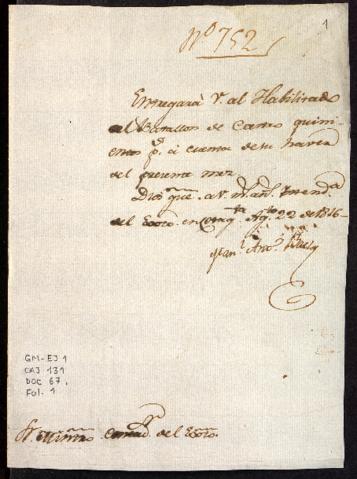 Nº 752
1
Entregará V. al Habilitado
del Batallon de Cauno quini
entos p.s á cuenta de su haver
del presente mes.
Dios gue. a V. m.s an.s Yntend.a
del Exto. en Comis.n Ag.to 22 de 1816
Juan
GM-EJ 1
CAJ 131
DOC 67.
Fol. 1
Sr. Ministro del Exto.